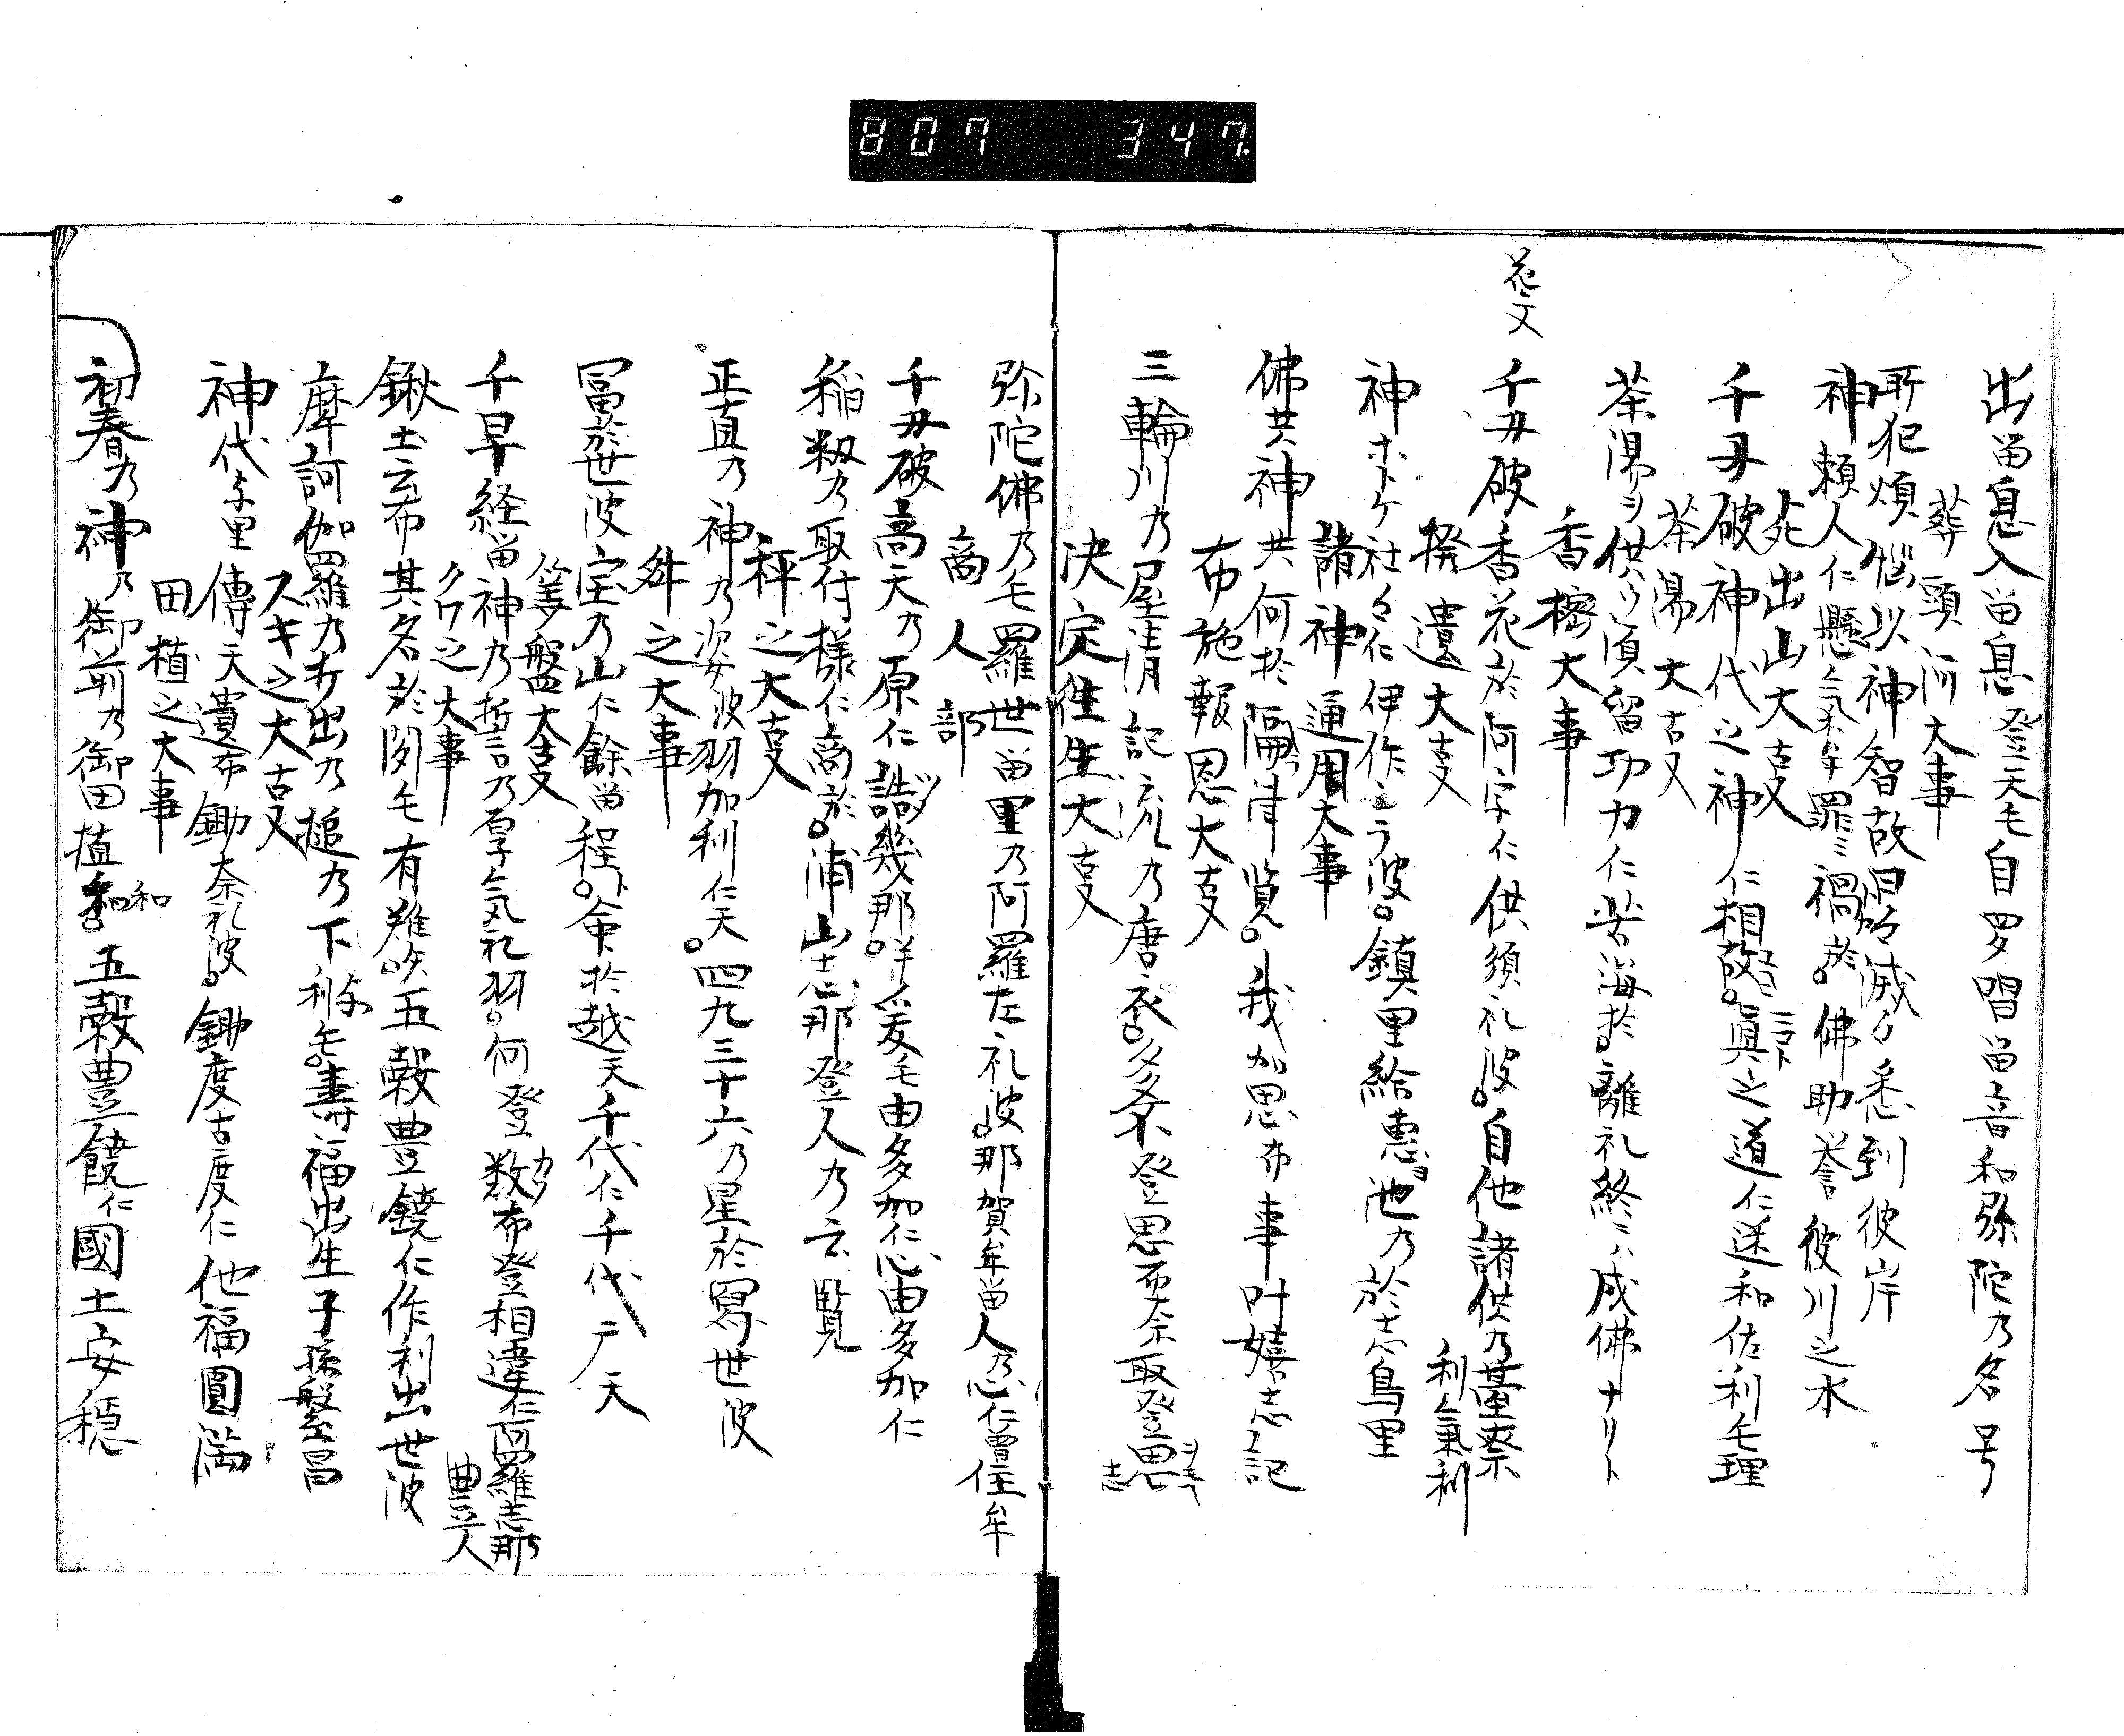 807 347
出留息入留息登天毛自罗習留音和弥陀乃名号
葬頭河大事
所犯煩悩以神智故日々滅々悉到彼岸
神頼人仁懸気牟罪三禍於佛助誉彼川之水
死出山大事
千早破神代之神仁相敬眞之道仁送和佐利毛理
茶湯大事
茶湯ヲ供ツ須留功力仁苦海於離礼終ニハ成佛ナリト
香檀大事
花文
千早破香花於阿字仁供須礼波自他諸供乃臺索
利氣利
撥遺大事
神ホトケ社々仁伊作ニラ波鎮里給恵池乃於志鳥里
諸神通用大事
佛共神共何於隔津覧我加思布事叶嬉志記
布施報恩大事
三輪川乃屋清記流乃唐衣多不登思而奈取登思
志
決定住生大事
弥陀佛乃毛羅世留里乃阿羅左礼波那賀牟留人乃心仁曾住牟
商人部
千早破高天乃原仁詣幾那半爰毛由多加仁心由多加仁
稲籾乃取付様仁商於浦山志那登人乃云覧
秤之大事
正直乃神乃姿波羽加利仁天四九三十六乃星於寫世波
舛之大事
冨於世波宝乃山仁餘留程命於越天千代仁千代ニ天
筭盤大事
千早経留神乃誓乃厚気礼羽何登数布登相違仁阿羅志那
クワ之大事
鍬土云布其名於聞毛有難哉五穀豊饒仁作利出世波
豊人
スキ之大事
摩訶伽羅乃打出乃槌乃下利毛寿福出生子孫繁昌
神代与里傳天貴布鋤奈礼波鋤度古度仁他福圓満
田植之大事
初春乃神乃御前乃御田植和五穀豊饒仁國土安穏